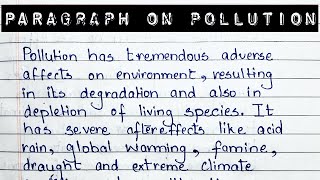 PARAGRAPH ON POLLUTION
Pollution has tremendous adverse
affects on environment, resulting
in its degradation and also in
depletion of living species. It
has severe aftereffects like acid
rain, global warming, famine,
draught and extreme climate